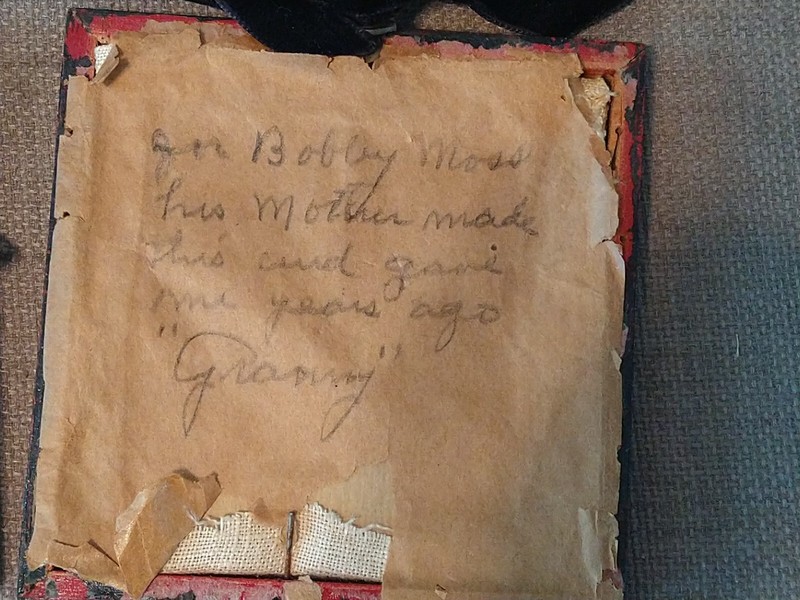 for Bobby Moss
his Mother made
this and gave
me years ago
"Granny"